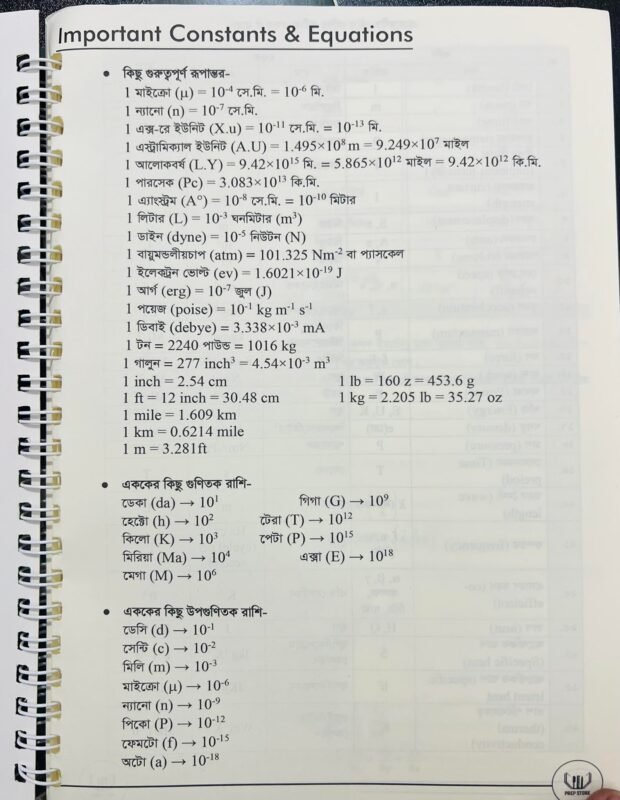 Important Constants & Equations
• কিছু গুরুত্বপূর্ণ রূপান্তর-
1 মাইক্রো (μ) = 10⁻⁴ সে.মি. = 10⁻⁶ মি.
1 ন্যানো (n) = 10⁻⁷ সে.মি.
1 এক্স-রে ইউনিট (X.u) = 10⁻¹¹ সে.মি. = 10⁻¹³ মি.
1 এস্ট্রোমিক্যাল ইউনিট (A.U) = 1.495×10⁸ m = 9.249×10⁷ মাইল
1 আলোকবর্ষ (L.Y) = 9.42×10¹⁵ মি. = 5.865×10¹² মাইল = 9.42×10¹² কি.মি.
1 পারসেক (Pc) = 3.083×10¹³ কি.মি.
1 এ্যাংস্ট্রম (A°) = 10⁻⁸ সে.মি. = 10⁻¹⁰ মিটার
1 লিটার (L) = 10⁻³ ঘনমিটার (m³)
1 ডাইন (dyne) = 10⁻⁵ নিউটন (N)
1 বায়ুমন্ডলীয়চাপ (atm) = 101.325 Nm⁻² বা প্যাসকেল
1 ইলেকট্রন ভোল্ট (ev) = 1.6021×10⁻¹⁹ J
1 আর্গ (erg) = 10⁻⁷ জুল (J)
1 পয়েজ (poise) = 10⁻¹ kg m⁻¹ s⁻¹
1 ডিবাই (debye) = 3.338×10⁻³ mA
1 টন = 2240 পাউন্ড = 1016 kg
1 গ্যালন = 277 inch³ = 4.54×10⁻³ m³
1 inch = 2.54 cm 1 lb = 160 z = 453.6 g
1 ft = 12 inch = 30.48 cm 1 kg = 2.205 lb = 35.27 oz
1 mile = 1.609 km
1 km = 0.6214 mile
1 m = 3.281ft
• এককের কিছু গুণিতক রাশি-
ডেকা (da) → 10¹ গিগা (G) → 10⁹
হেক্টো (h) → 10² টেরা (T) → 10¹²
কিলো (K) → 10³ পেটা (P) → 10¹⁵
মিরিয়া (Ma) → 10⁴ এক্সা (E) → 10¹⁸
মেগা (M) → 10⁶
• এককের কিছু উপগুণিতক রাশি-
ডেসি (d) → 10⁻¹
সেন্টি (c) → 10⁻²
মিলি (m) → 10⁻³
মাইক্রো (μ) → 10⁻⁶
ন্যানো (n) → 10⁻⁹
পিকো (P) → 10⁻¹²
ফেমটো (f) → 10⁻¹⁵
অটো (a) → 10⁻¹⁸
PREP STORE